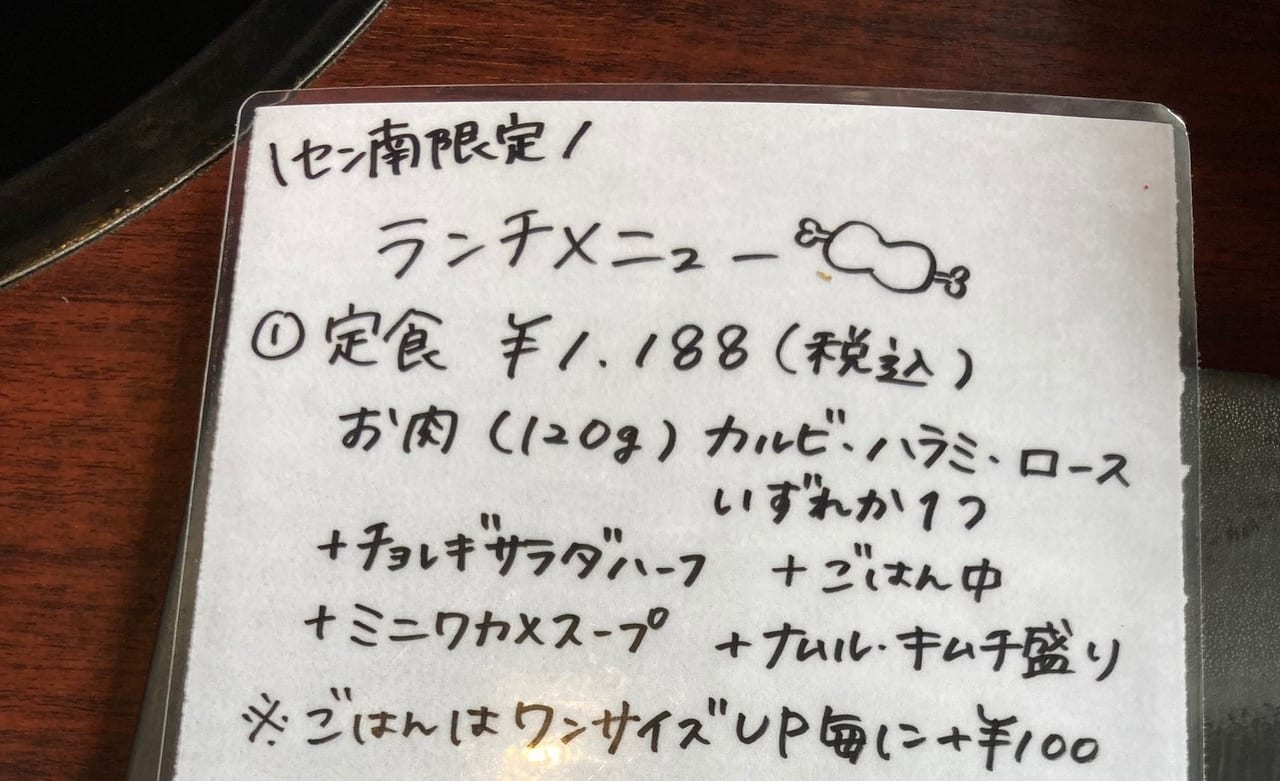 \セン南限定/
ランチメニュー
① 定食 ¥1.188(税込)
お肉(120g)カルビ・ハラミ・ロース
いずれか1つ
+チョレギサラダハーフ +ごはん中
+ミニワカメスープ +ナムル・キムチ盛り
※ごはんはワンサイズUP毎に+¥100